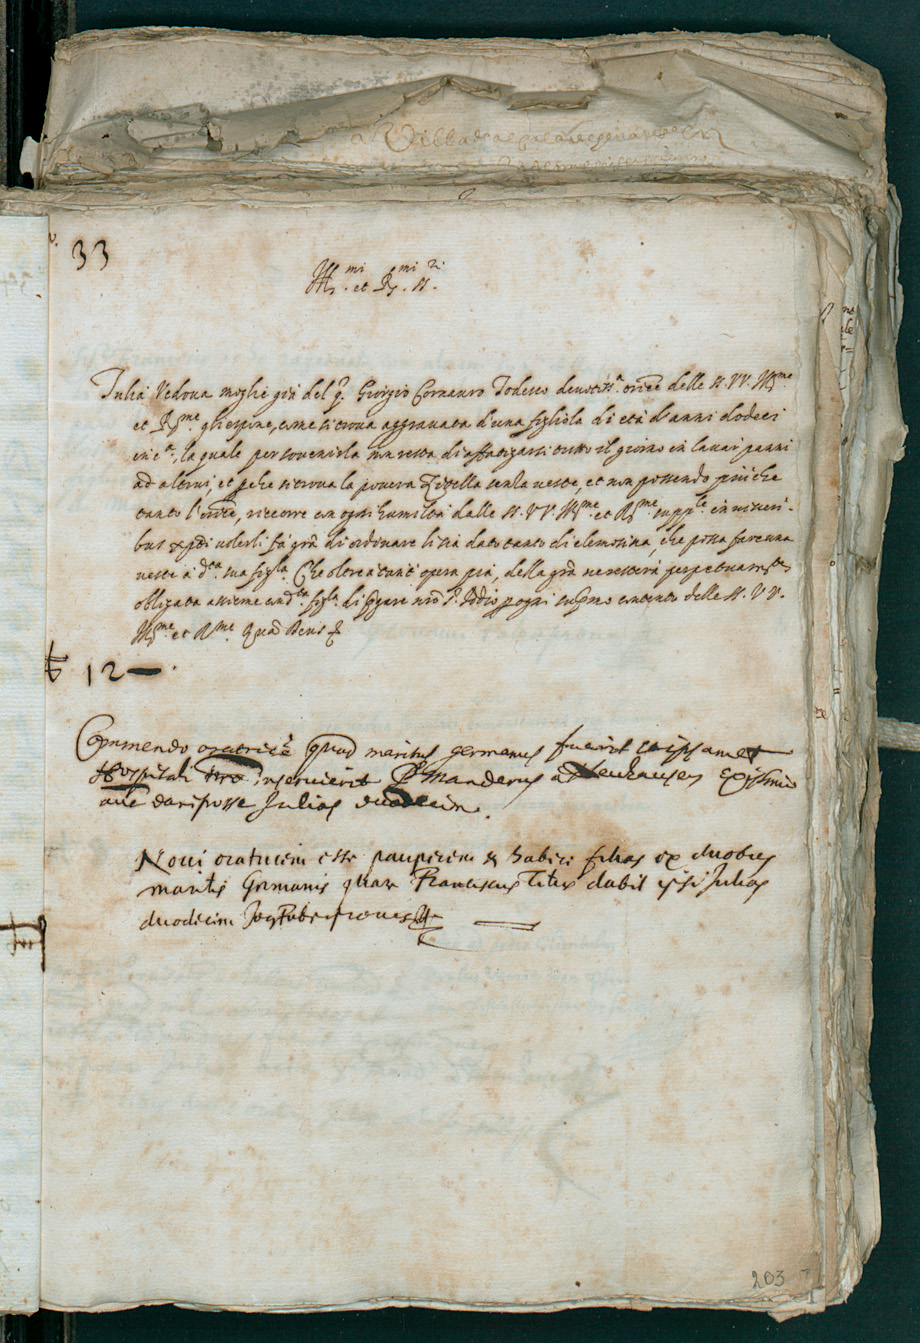 33
Ill.mi et R.mi SS.ri
Iulia Vedova moglie già del q. Giorgio Cornauro Todesco devotiss.a oratrice delle SS. VV. Ill.me
et R.me gli espone, come si trova aggravata d'una figliola di età d'anni dodeci
in c.a, la quale per sovenirla non resta di affatigarsi tutto il giorno in lavar panni
ad altrui, et perche si trova la povera Zitella senza veste, et non possendo più che
tanto l'oratrice, ricorre con ogni humiltà dalle SS. VV. Ill.me et R.me supp.le in visceri-
bus xpi volerli far gra di ordinare li sia dato tanto di elemosina, che possa fare una
veste à d.ta sua figl.a Che oltre à tant' opera pia, della gra ne resterà perpetuam.te
obligata assieme con d.ta figl.a di pregare nro S. Iddio per ogni supremo contento delle SS. VV.
Ill.me et R.me Quam Deus
12 —
Commendo oratricem quod maritus germanus fuerit et ipsamet
Hospitali inservierit Manderus a Leuhausen Existimo
dari posse Julios duodecim.
Novi oratricem esse pauperem et habere filias ex duobus
maritis Germanis quare Franciscus Titus dabit ipsi Julios
duodecim
203